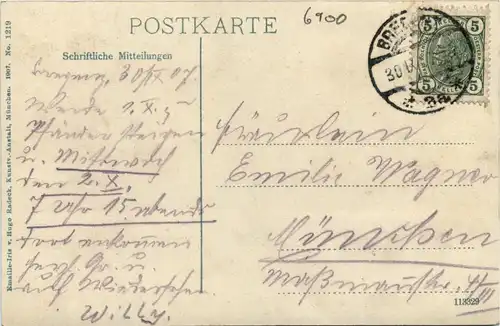 6900
POSTKARTE
Schriftliche Mitteilungen
Bregenz, 30/IX 07
Werde 1.X.
Pfänder steigen
u. Mittwoch
den 2.X.
7 Uhr 15 abends
dort ankommen
u.
Auf Wiedersehen
Fräulein
Emilie Wagner
München
Maßmannstr. 4/III
BREG
30.IX
5
5
5
5
Emaille-Iris v. Hugo Radeck, Kunstv.-Anstalt, München. 1907. No. 1219
113329